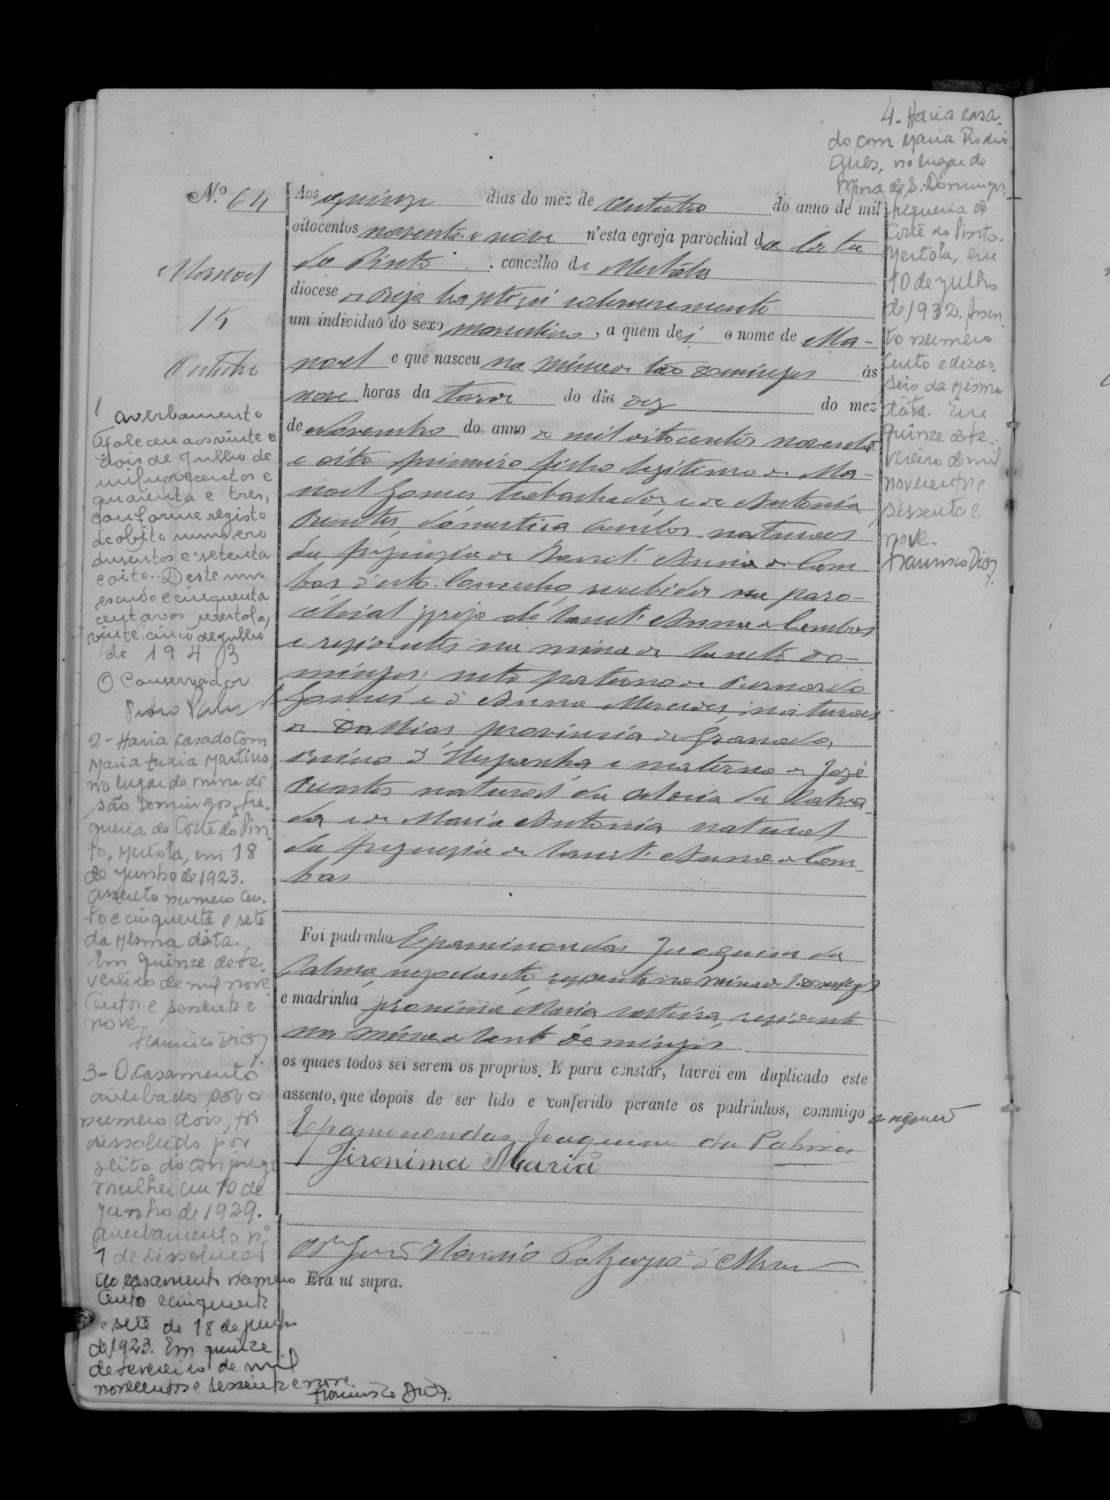 Nº 64
Manoel
15
Outubro
Aos quinze dias do mez de Outubro do anno de mil
oitocentos noventa e nove n'esta egreja parochial da Corte
do Pinto, concelho de Mertola
diocese de Beja baptizei solemnemente
um individuo do sexo masculino, a quem dei o nome de Ma-
noel e que nasceu na mina de São Domingos ás
nove horas da tarde do dia dez do mez
de Novembro do anno de mil oitocentos noventa
e oito primeiro filho legitimo de Ma-
noel Gomes trabalhador e de Antonia
domestica ambos naturaes
da freguezia de Sant'Anna de Cam-
bas d'este Concelho, recebidos na paro-
chial igreja de Sant'Anna de Cambas
e residentes na mina de Sancto Do-
mingos; neto paterno de Bernardo
Gomes e d'Anna Mercedes naturaes
de Dallias provincia de Granada,
Reino d'Hespanha e materno de José
natural da
da e de Maria Antonia natural
da freguezia de Sant'Anna de Cam-
bas
Foi padrinho Epaminondas Joaquim da
Palma, negociante, residente na Mina de S. Domingos
e madrinha Jeronima Maria, residente
na Mina de Sant Domingos
os quaes todos sei serem os proprios. E para constar, lavrei em duplicado este
assento, que depois de ser lido e conferido perante os padrinhos, commigo
Epaminondas Joaquim da Palma
Jironima Maria
Era ut supra.
1 averbamento
Faleceu aos vinte e
dois de Julho de
mil novecentos e
quarenta e tres,
conforme registo
de obito numero
duzentos e setenta
e oito. Deste um
escudo e cinquenta
centavos. Mertola,
vinte cinco de julho
de 1943
O Conservador
2 - Havia casado com
Maria Luzia Martins
no lugar de mina de
são Domingos, fre-
guesia de Corte do Pin-
to, Mertola, em 18
de junho de 1923.
Assento numero cen-
to e cinquenta e sete
da mesma data.
Em quinze de fe-
vereiro de mil nove
centos e sessenta e
nove.
Francisco Dioz
3 - O Casamento
averbado sob o
numero dois, foi
dissolvido por
obito do conjuge
mulher em 10 de
junho de 1929.
Averbamento nº
1 de Dissolução
ao casamento numero
cento e cinquenta
e sete de 18 de junho
de 1923. Em quinze
de fevereiro de mil
novecentos e sessenta e nove.
Francisco Dioz.
4 - Havia casa-
do com Maria Rodri-
gues, no lugar de
Mina de S. Domingos,
freguesia de
Corte do Pinto,
Mertola, em
10 de julho
de 1932. Assen-
to numero
cento e dezas-
seis da mesma
data. Em
quinze de fe-
vereiro de mil
novecentos e
sessenta e
nove.
Francisco Dioz